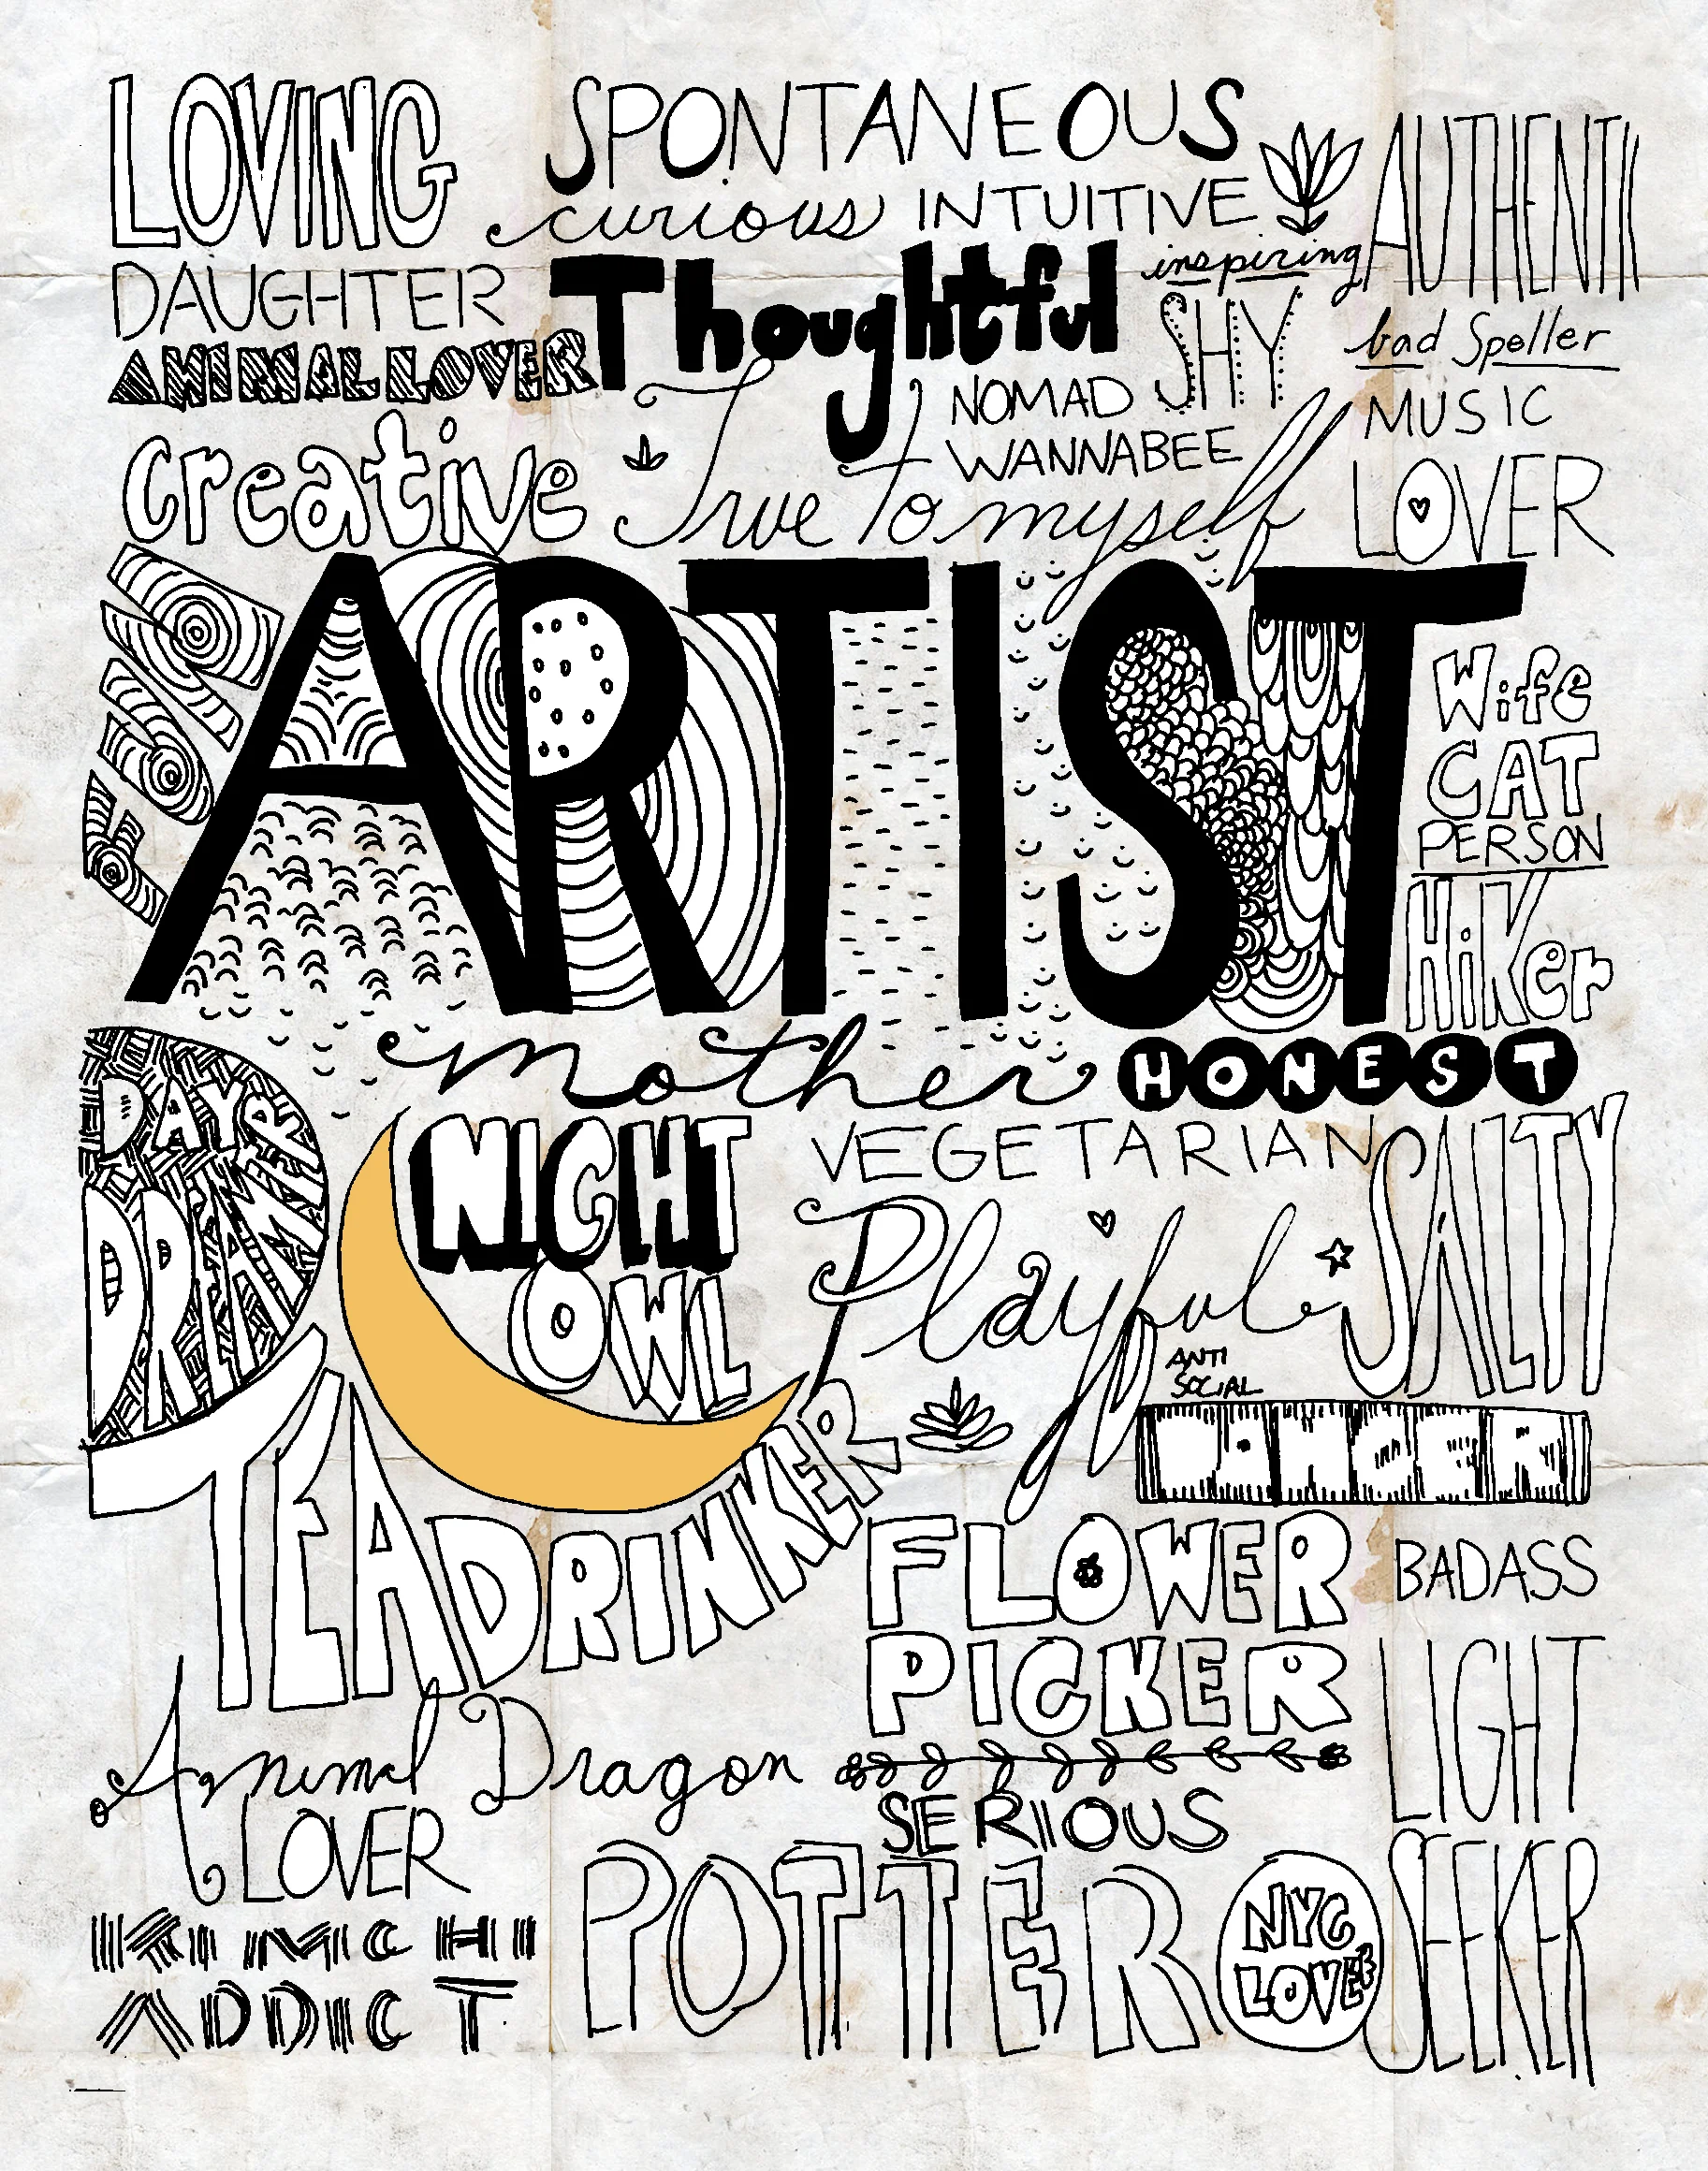 LOVING
SPONTANEOUS
curious
INTUITIVE
AUTHENTIC
inspiring
DAUGHTER
Thoughtful
SHY
bad Speller
ANIMAL LOVER
NOMAD
WANNABEE
MUSIC
LOVER
creative
True To myself
ARTIST
Wife
CAT
PERSON
HiKer
mother
HONEST
DAY
DREAMER
NIGHT
OWL
VEGETARIAN
SALTY
Playful
ANTI
SOCIAL
DANCER
TEA DRINKER
FLOWER
PICKER
BADASS
LIGHT
SEEKER
Animal Dragon
LOVER
SERIOUS
POTTER
NYC
LOVER
KIMCHI
ADDICT